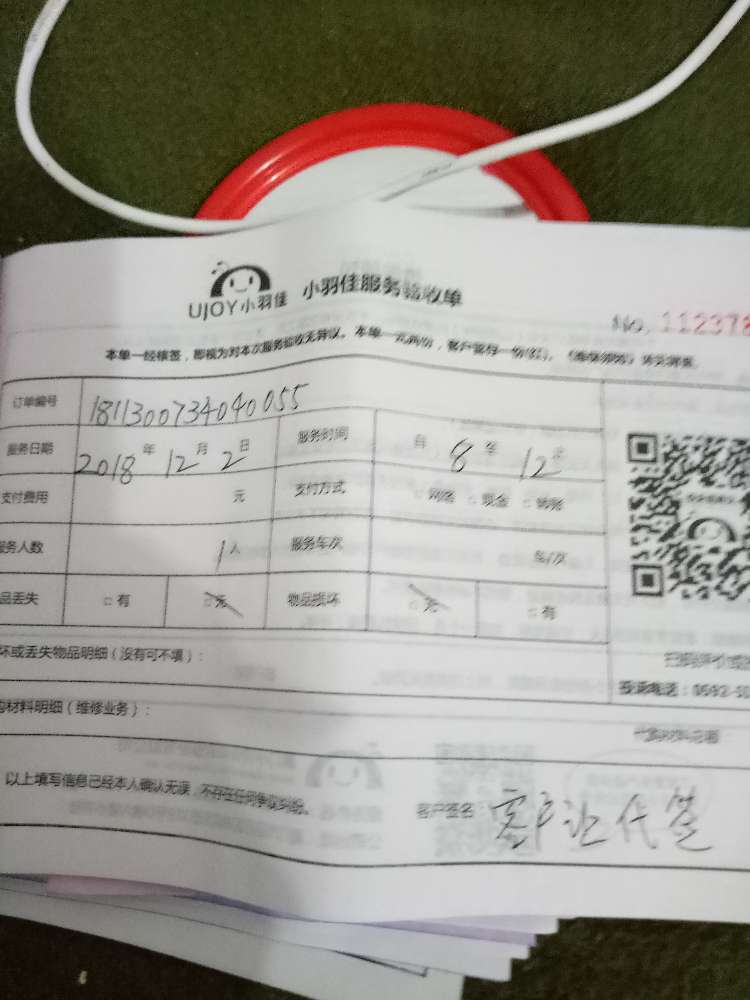 UJOY小羽佳 小羽佳服务验收单
No. 112378
本单一经核签，即视为对本次服务验收无异议。本单一式两份，客户留存一份(红)。
订单编号 1811300734040055
服务日期 2018年12月2日 服务时间 自8至12
支付费用 元 支付方式 □网络 □现金 □转账
服务人数 1人 服务车次 车/次
品丢失 □有 □无 物品损坏 □无 □有
坏或丢失物品明细（没有可不填）：
扫码评价或
投诉电话：0592-50
购材料明细（维修业务）：
代购材料总额：
以上填写信息已经本人确认无误，不存在任何争议纠纷。
客户签名：客户让代签